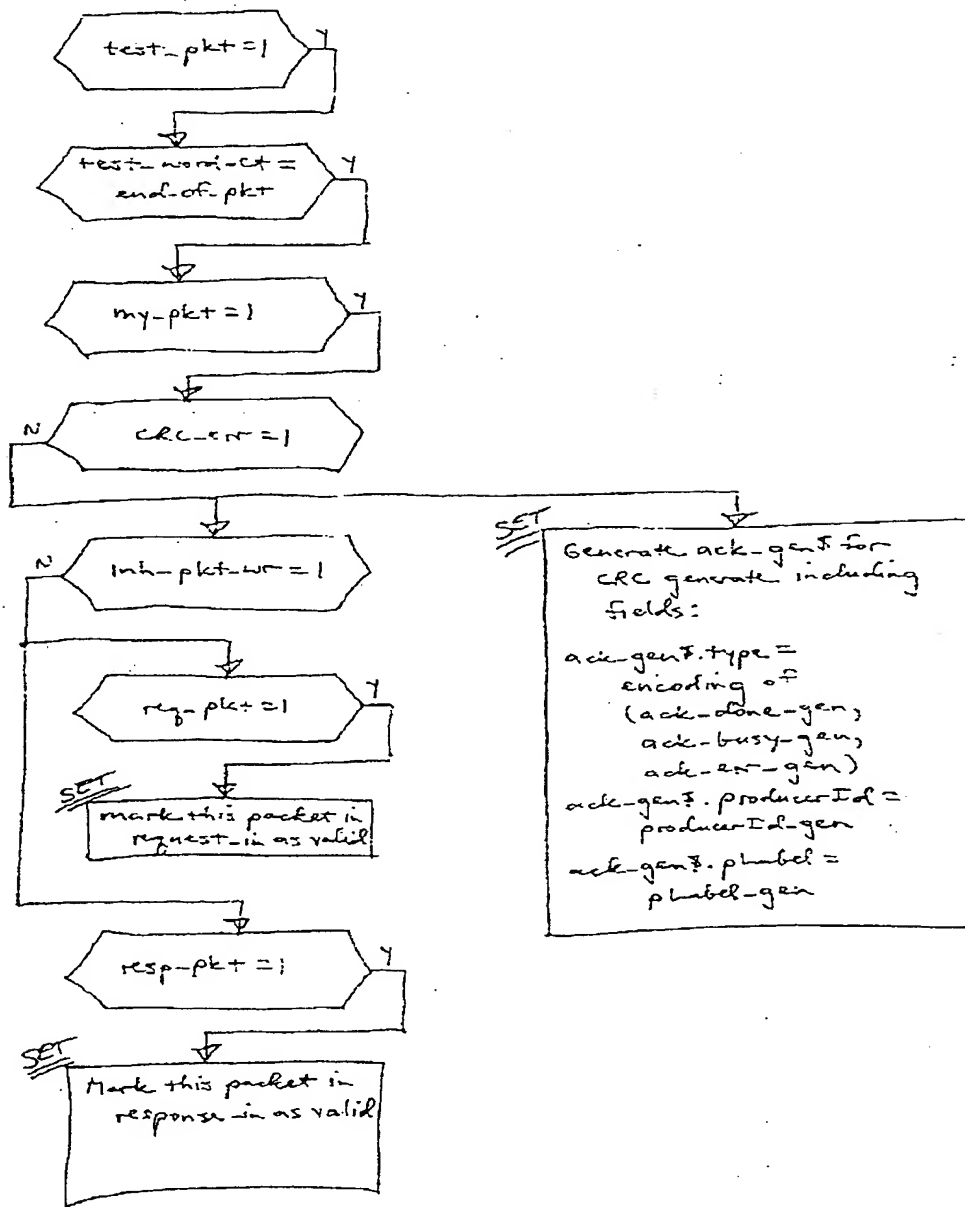 test_pkt = 1
Y
test_word_ct =
end_of_pkt
Y
my_pkt = 1
Y
CRC_err = 1
N
inh_pkt_wr = 1
N
req_pkt = 1
Y
SET
mark this packet in
request_in as valid
resp_pkt = 1
Y
SET
Mark this packet in
response_in as valid
SET
Generate ack_gen$ for
CRC generate including
fields:
ack_gen$.type =
encoding of
(ack_done_gen,
ack_busy_gen,
ack_err_gen)
ack_gen$.producerId =
producerId_gen
ack_gen$.phabel =
phabel_gen